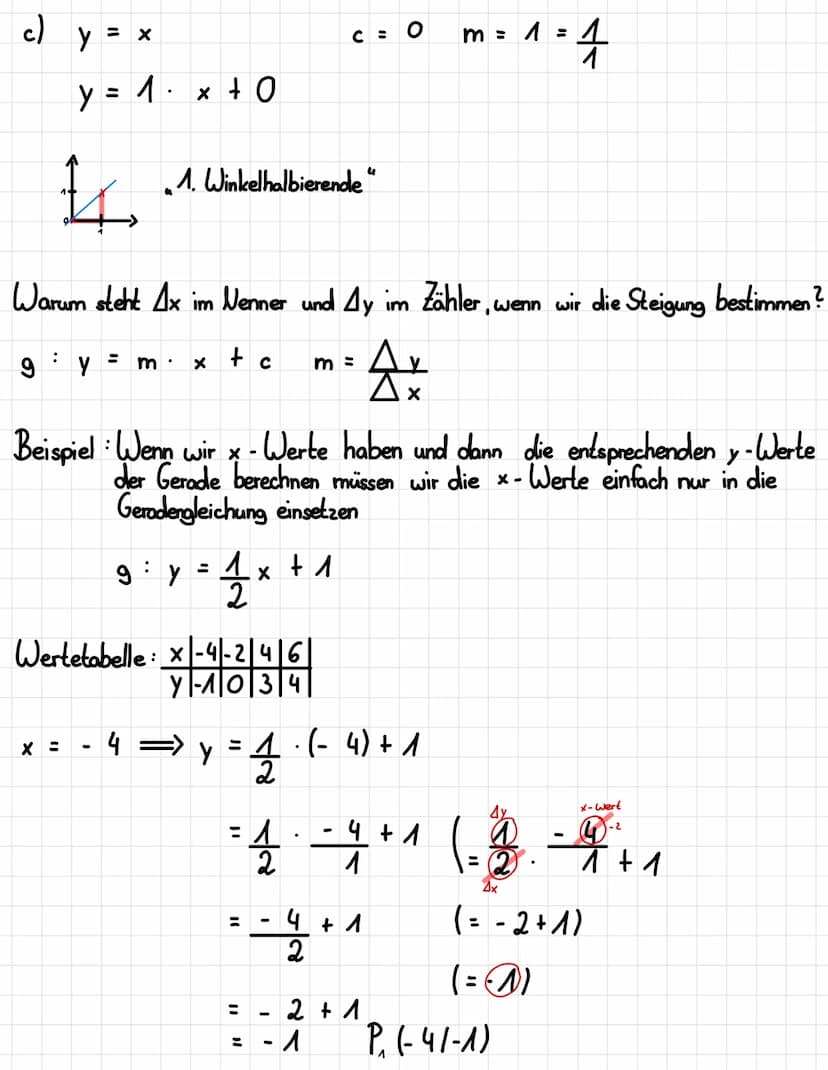 c) y = x c = 0 m = 1 = 1/1
y = 1 · x + 0
1
0
1
„1. Winkelhalbierende“
Warum steht Δx im Nenner und Δy im Zähler, wenn wir die Steigung bestimmen?
g : y = m · x + c m = Δy/Δx
Beispiel : Wenn wir x - Werte haben und dann die entsprechenden y - Werte
der Gerade berechnen müssen wir die x - Werte einfach nur in die
Geradengleichung einsetzen
g : y = 1/2 x + 1
Wertetabelle : x | -4 | -2 | 4 | 6 |
y | -1 | 0 | 3 | 4 |
x = - 4 ⟹ y = 1/2 · (- 4) + 1
Δy x-Wert
= 1/2 · - 4/1 + 1 (= 1/2 · - 4/1 + 1
-2
Δx
= - 4/2 + 1 (= - 2 + 1)
(= -1)
= - 2 + 1
= - 1 P₁ (- 4 / -1)